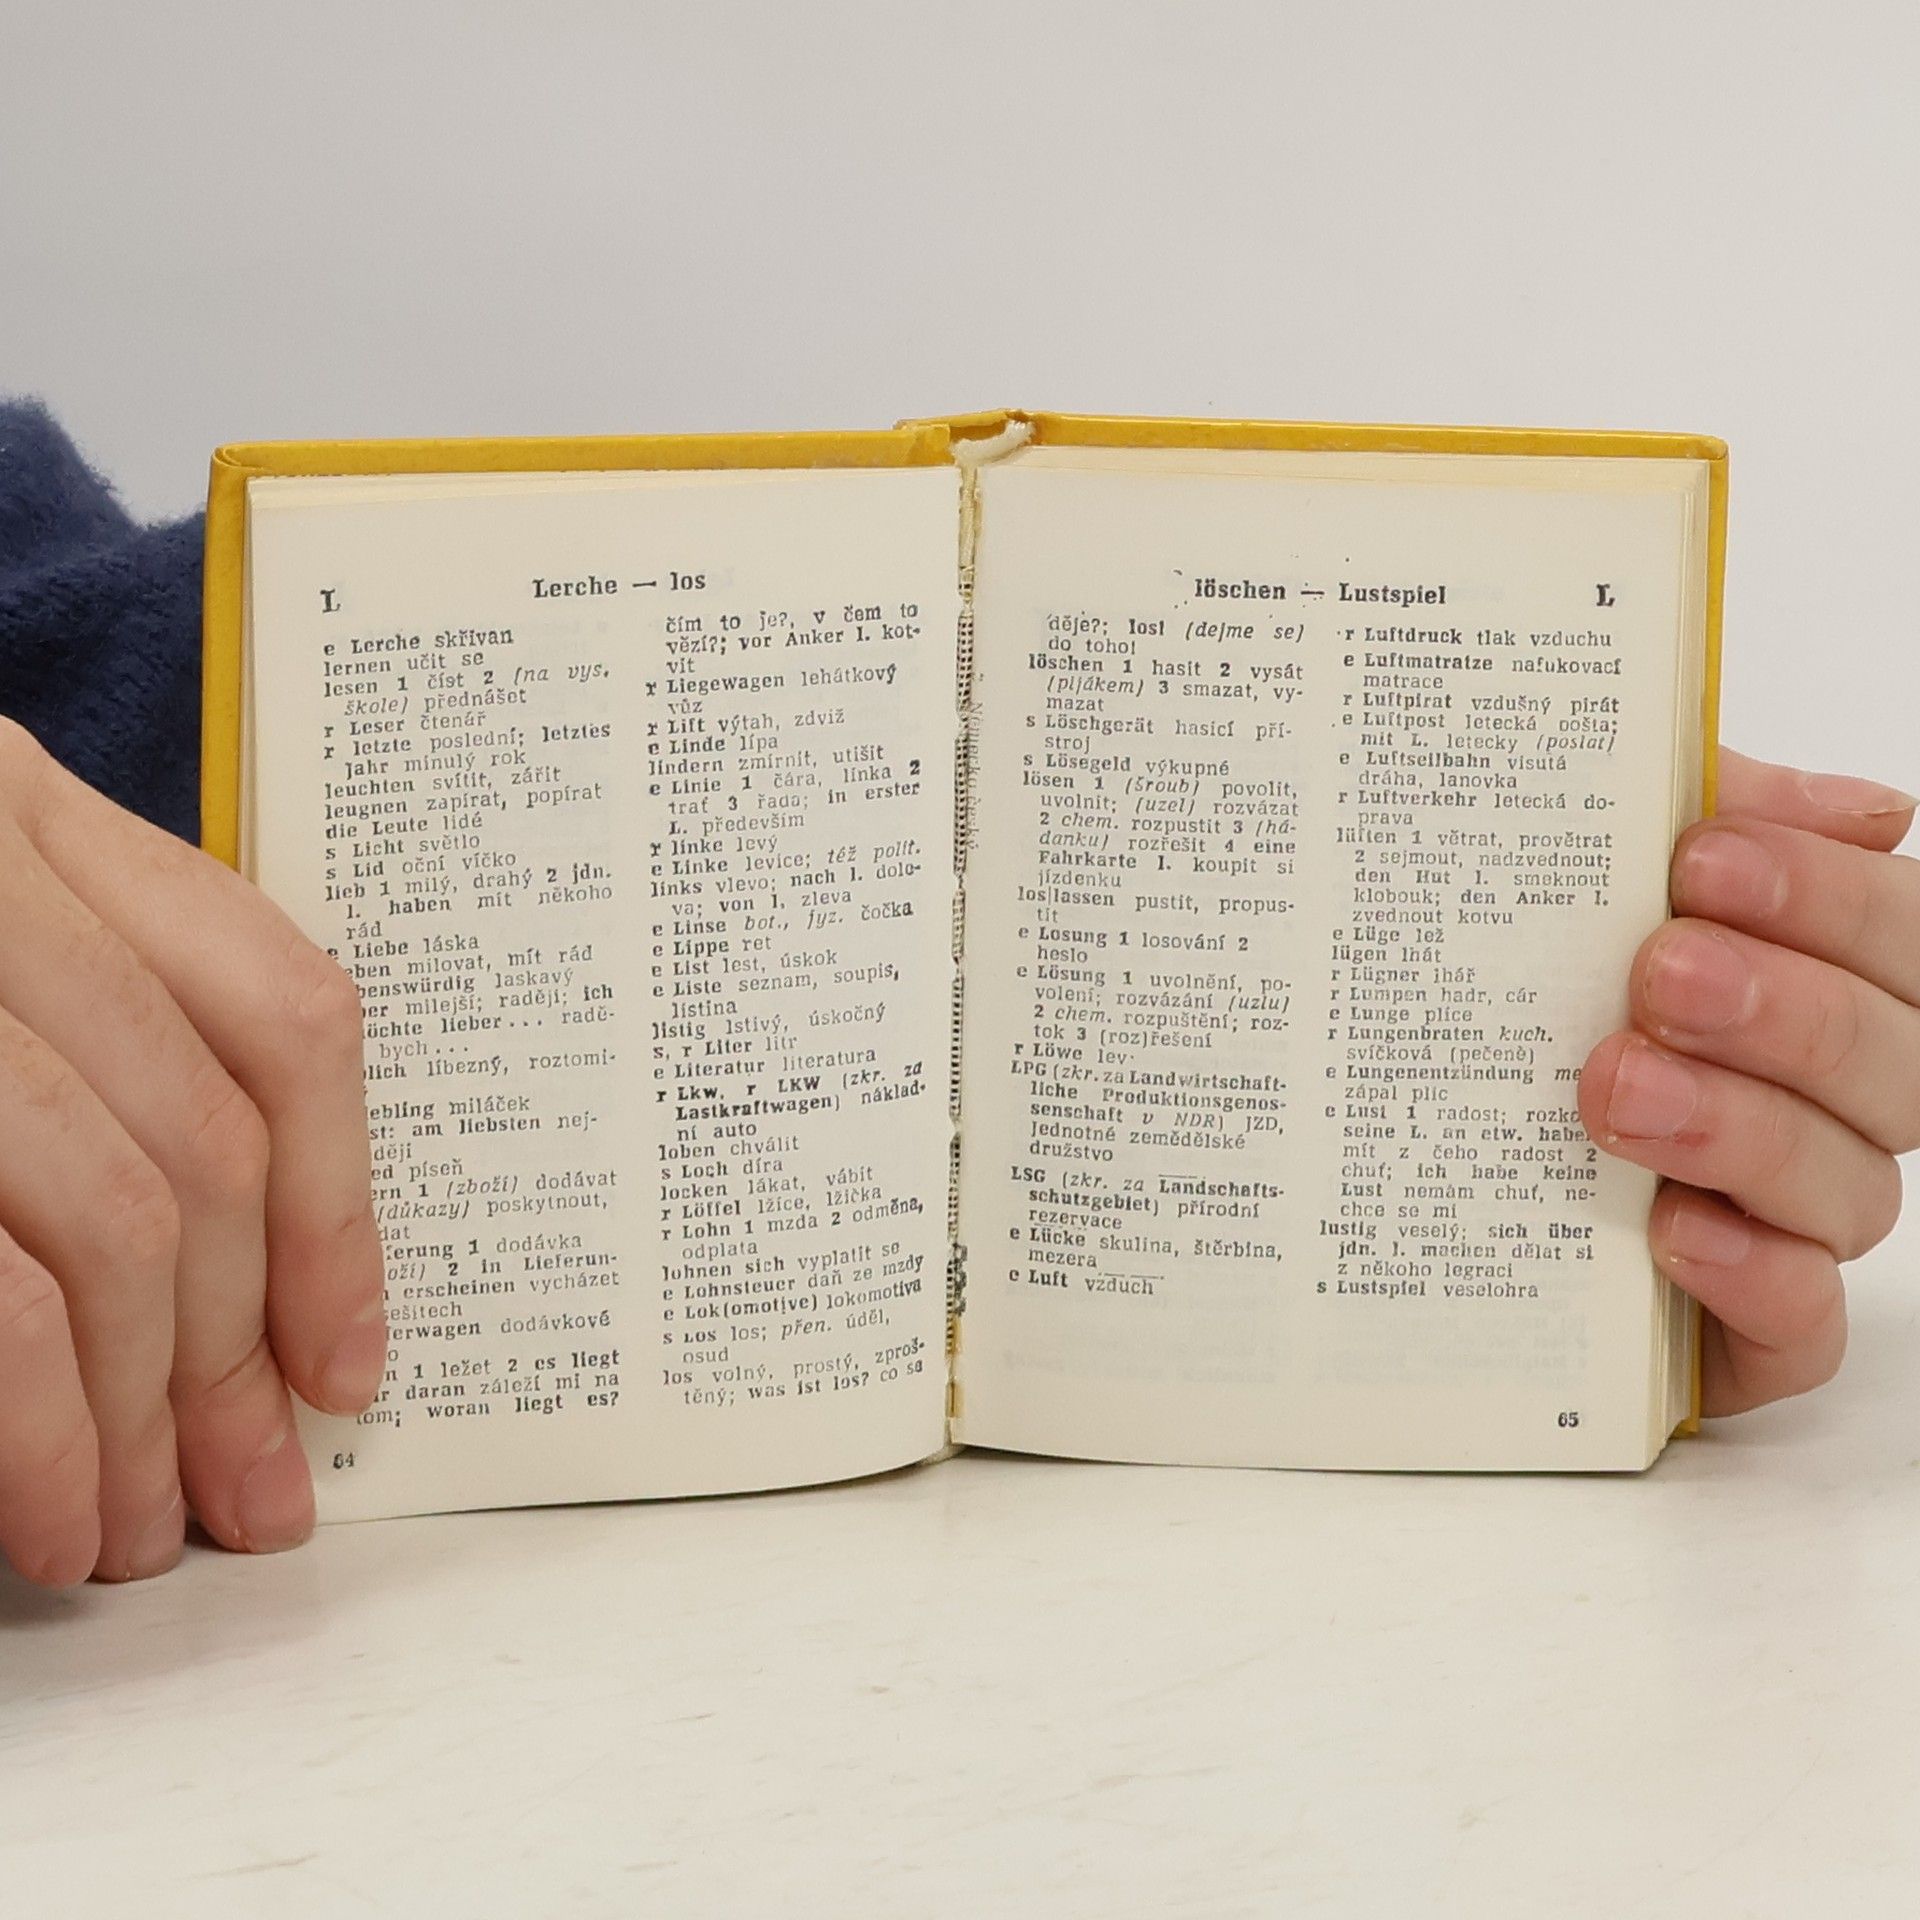 L
Lerche — los
e Lerche skřivan
lernen učit se
lesen 1 číst 2 (na vys.
škole) přednášet
r Leser čtenář
r letzte poslední; letztes
Jahr minulý rok
leuchten svítit, zářit
leugnen zapírat, popírat
die Leute lidé
s Licht světlo
s Lid oční víčko
lieb 1 milý, drahý 2 jdn.
l. haben mít někoho
rád
e Liebe láska
eben milovat, mít rád
benswürdig laskavý
ber milejší; raději; ich
öchte lieber... radě-
bych...
lich líbezný, roztomi-
ebling miláček
st: am liebsten nej-
ději
ed píseň
ern 1 (zboží) dodávat
(důkazy) poskytnout,
dat
ferung 1 dodávka
oží) 2 in Lieferun-
n erscheinen vycházet
sešitech
ferwagen dodávkové
o
n 1 ležet 2 es liegt
ir daran záleží mi na
tom; woran liegt es?
64
čím to je?, v čem to
vězí?; vor Anker l. kot-
vit
r Liegewagen lehátkový
vůz
r Lift výtah, zdviž
e Linde lípa
lindern zmírnit, utišit
e Linie 1 čára, linka 2
trať 3 řada; in erster
L. především
r linke levý
e Linke levice; též polit.
links vlevo; nach l. dole-
va; von l. zleva
e Linse bot., fyz. čočka
e Lippe ret
e List lest, úskok
e Liste seznam, soupis,
listina
listig lstivý, úskočný
s, r Liter litr
e Literatur literatura
r Lkw, r LKW (zkr. za
Lastkraftwagen) náklad-
ní auto
loben chválit
s Loch díra
locken lákat, vábit
r Löffel lžíce, lžička
r Lohn 1 mzda 2 odměna,
odplata
lohnen sich vyplatit se
e Lohnsteuer daň ze mzdy
e Lok(omotive) lokomotiva
s Los los; přen. úděl,
osud
los volný, prostý, zproš-
těný; was ist los? co se
löschen — Lustspiel
L
děje?; los! (dejme se)
do toho!
löschen 1 hasit 2 vysát
(pijákem) 3 smazat, vy-
mazat
s Löschgerät hasicí pří-
stroj
s Lösegeld výkupné
lösen 1 (šroub) povolit,
uvolnit; (uzel) rozvázat
2 chem. rozpustit 3 (há-
danku) rozřešit 4 eine
Fahrkarte l. koupit si
jízdenku
los|lassen pustit, propus-
tit
e Losung 1 losování 2
heslo
e Lösung 1 uvolnění, po-
volení; rozvázání (uzlu)
2 chem. rozpuštění; roz-
tok 3 (roz)řešení
r Löwe lev
LPG (zkr. za Landwirtschaft-
liche Produktionsgenos-
senschaft v NDR) JZD,
Jednotné zemědělské
družstvo
LSG (zkr. za Landschafts-
schutzgebiet) přírodní
rezervace
e Lücke skulina, štěrbina,
mezera
e Luft vzduch
r Luftdruck tlak vzduchu
e Luftmatratze nafukovací
matrace
r Luftpirat vzdušný pirát
e Luftpost letecká pošta;
mit L. letecky (poslat)
e Luftseilbahn visutá
dráha, lanovka
r Luftverkehr letecká do-
prava
lüften 1 větrat, provětrat
2 sejmout, nadzvednout;
den Hut l. smeknout
klobouk; den Anker l.
zvednout kotvu
e Lüge lež
lügen lhát
r Lügner lhář
r Lumpen hadr, cár
e Lunge plíce
r Lungenbraten kuch.
svíčková (pečeně)
e Lungenentzündung me
zápal plic
e Lust 1 radost; rozko
seine L. an etw. habe
mít z čeho radost 2
chuť; ich habe keine
Lust nemám chuť, ne-
chce se mi
lustig veselý; sich über
jdn. l. machen dělat si
z někoho legraci
s Lustspiel veselohra
65